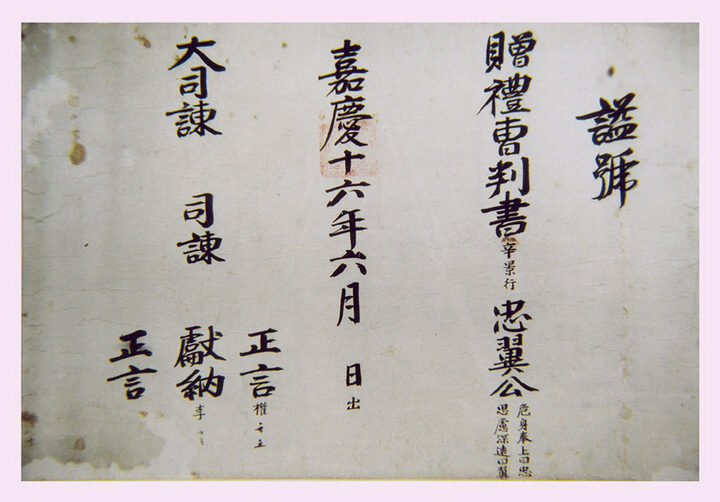 諡號
贈禮曺判書辛景行忠翼公
危身奉上曰忠
思慮深遠曰翼
嘉慶十六年六月 日出
正言權
大司諫 司諫 獻納李
正言